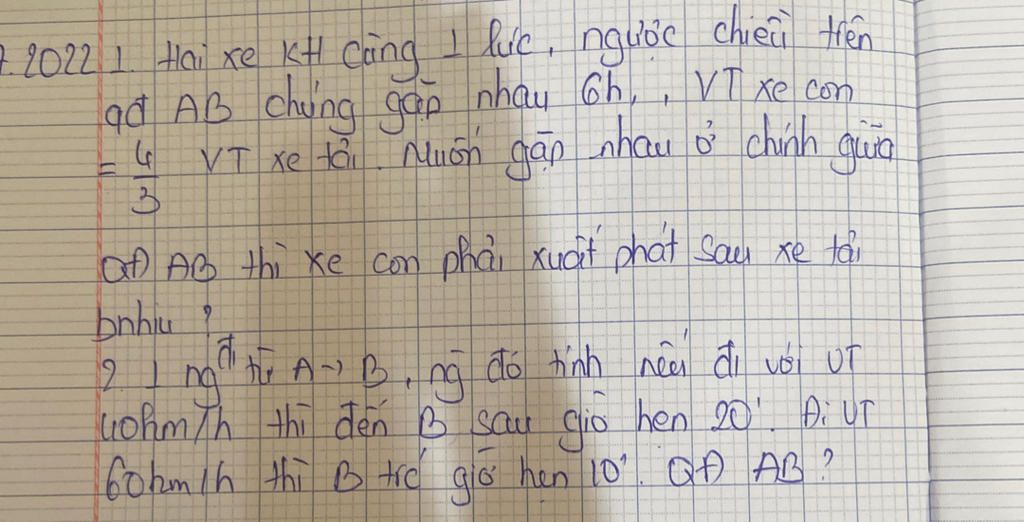 .2022 1. Hai xe KH cùng 1 lúc, ngược chiều trên
qđ AB chúng gặp nhau 6h, , VT xe con
= 4/3 VT xe tải. Muốn gặp nhau ở chính giữa
QĐ AB thì xe con phải xuất phát sau xe tải
bnhiu ?
2. 1 ng đi từ A → B, ng đó tính nếu đi với VT
40km/h thì đến B sau giờ hẹn 20'. Đi VT
60km/h thì B trc giờ hẹn 10'. QĐ AB ?